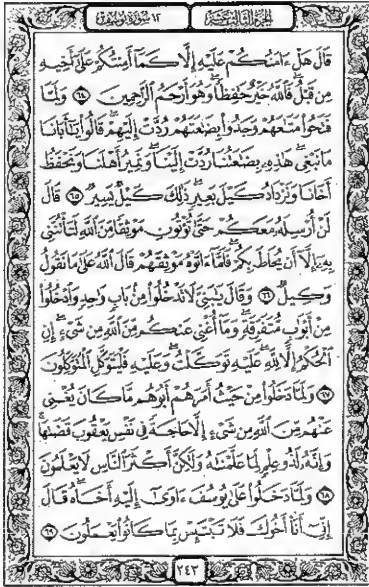 الجزء الثالث عشر ١٢ سورة يوسف
قَالَ هَلْ ءَامَنُكُمْ عَلَيْهِ إِلَّا كَمَآ أَمِنتُكُمْ عَلَىٰٓ أَخِيهِ
مِن قَبْلُ فَٱللَّهُ خَيْرٌ حَٰفِظًا وَهُوَ أَرْحَمُ ٱلرَّٰحِمِينَ ٦٤ وَلَمَّا
فَتَحُوا۟ مَتَٰعَهُمْ وَجَدُوا۟ بِضَٰعَتَهُمْ رُدَّتْ إِلَيْهِمْ قَالُوا۟ يَٰٓأَبَانَا
مَا نَبْغِى هَٰذِهِۦ بِضَٰعَتُنَا رُدَّتْ إِلَيْنَا وَنَمِيرُ أَهْلَنَا وَنَحْفَظُ
أَخَانَا وَنَزْدَادُ كَيْلَ بَعِيرٍ ذَٰلِكَ كَيْلٌ يَسِيرٌ ٦٥ قَالَ
لَنْ أُرْسِلَهُۥ مَعَكُمْ حَتَّىٰ تُؤْتُونِ مَوْثِقًا مِّنَ ٱللَّهِ لَتَأْتُنَّنِى
بِهِۦٓ إِلَّآ أَن يُحَاطَ بِكُمْ فَلَمَّآ ءَاتَوْهُ مَوْثِقَهُمْ قَالَ ٱللَّهُ عَلَىٰ مَا نَقُولُ
وَكِيلٌ ٦٦ وَقَالَ يَٰبَنِىَّ لَا تَدْخُلُوا۟ مِنۢ بَابٍ وَٰحِدٍ وَٱدْخُلُوا۟
مِنْ أَبْوَٰبٍ مُّتَفَرِّقَةٍ وَمَآ أُغْنِى عَنكُم مِّنَ ٱللَّهِ مِن شَىْءٍ إِنِ
ٱلْحُكْمُ إِلَّا لِلَّهِ عَلَيْهِ تَوَكَّلْتُ وَعَلَيْهِ فَلْيَتَوَكَّلِ ٱلْمُتَوَكِّلُونَ
٦٧ وَلَمَّا دَخَلُوا۟ مِنْ حَيْثُ أَمَرَهُمْ أَبُوهُم مَّا كَانَ يُغْنِى
عَنْهُم مِّنَ ٱللَّهِ مِن شَىْءٍ إِلَّا حَاجَةً فِى نَفْسِ يَعْقُوبَ قَضَىٰهَا
وَإِنَّهُۥ لَذُو عِلْمٍ لِّمَا عَلَّمْنَٰهُ وَلَٰكِنَّ أَكْثَرَ ٱلنَّاسِ لَا يَعْلَمُونَ
٦٨ وَلَمَّا دَخَلُوا۟ عَلَىٰ يُوسُفَ ءَاوَىٰٓ إِلَيْهِ أَخَاهُ قَالَ
إِنِّىٓ أَنَا۠ أَخُوكَ فَلَا تَبْتَئِسْ بِمَا كَانُوا۟ يَعْمَلُونَ ٦٩
٢٤٣